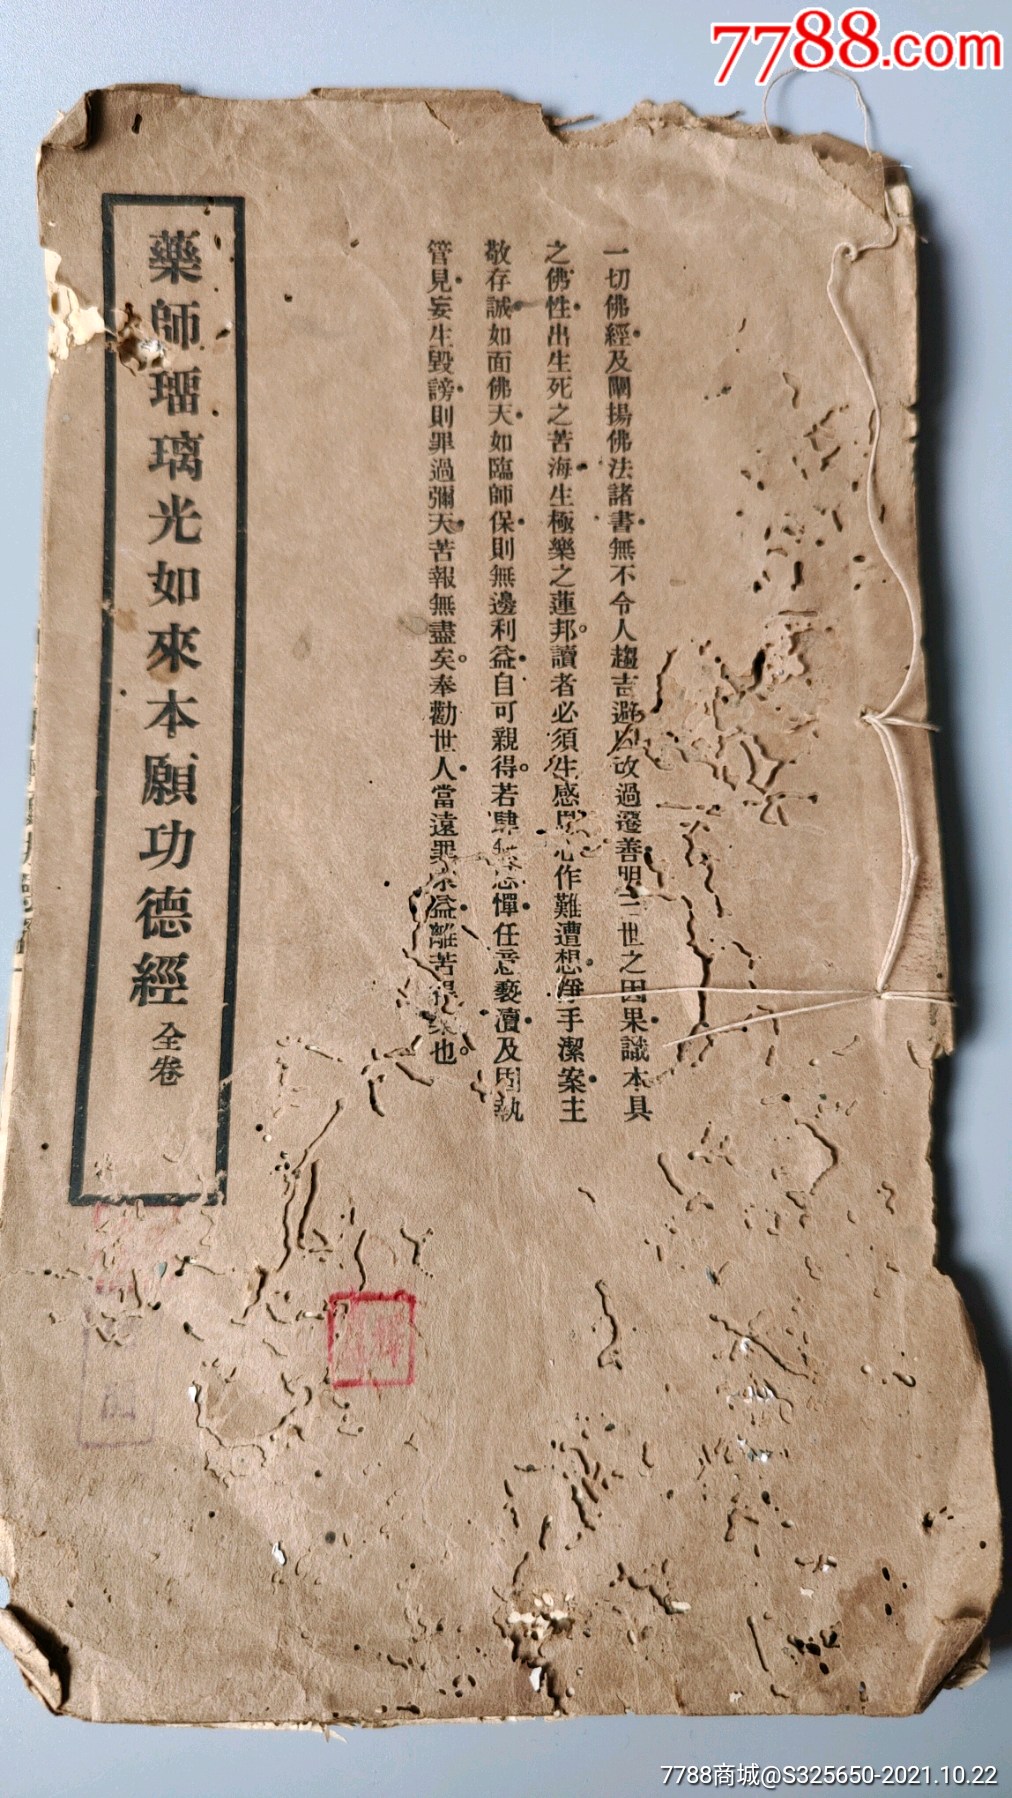 7788.com
一切佛經及闡揚佛法諸書無不令人趨吉避凶改過遷善明三世之因果識本具
之佛性出生死之苦海生極樂之蓮邦讀者必須生感恩心作難遭想淨手潔案主
敬存誠如面佛天如臨師保則無邊利益自可親得若肆無忌憚任意褻瀆及固執
管見妄生毀謗則罪過彌天苦報無盡矣奉勸世人當遠罪求益離苦得樂也
藥師瑠璃光如來本願功德經 全卷
7788商城@S325650-2021.10.22